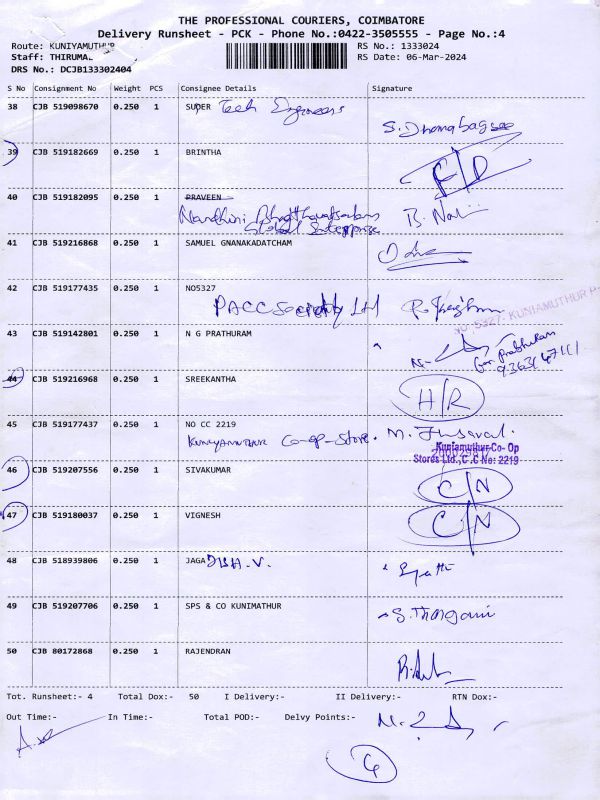 THE PROFESSIONAL COURIERS, COIMBATORE
Delivery Runsheet - PCK - Phone No.:0422-3505555 - Page No.:4
Route: KUNIYAMUTHUR RS No.: 1333024
Staff: THIRUMAL RS Date: 06-Mar-2024
DRS No.: DCJB133302404
S No Consignment No Weight PCS Consignee Details Signature
38 CJB 519098670 0.250 1 SUPER Tech Engineers
39 CJB 519182669 0.250 1 BRINTHA
40 CJB 519182095 0.250 1 PRAVEEN
Nandhini
Global Enterprise
41 CJB 519216868 0.250 1 SAMUEL GNANAKADATCHAM
42 CJB 519177435 0.250 1 NO5327
PACC Society Ltd
NO. 5327. KUNIAMUTHUR P
43 CJB 519142801 0.250 1 N G PRATHURAM
44 CJB 519216968 0.250 1 SREEKANTHA
H/R
45 CJB 519177437 0.250 1 NO CC 2219
KUNIYAMUTHUR Co-op-Store.
Kuniamuthur Co- Op
Stores Ltd.,C.C No: 2219
46 CJB 519207556 0.250 1 SIVAKUMAR
C/N
47 CJB 519180037 0.250 1 VIGNESH
C/N
48 CJB 518939806 0.250 1 JAGADISH.V.
49 CJB 519207706 0.250 1 SPS & CO KUNIMATHUR
50 CJB 80172868 0.250 1 RAJENDRAN
Tot. Runsheet:- 4 Total Dox:- 50 I Delivery:- II Delivery:- RTN Dox:-
Out Time:- In Time:- Total POD:- Delvy Points:-